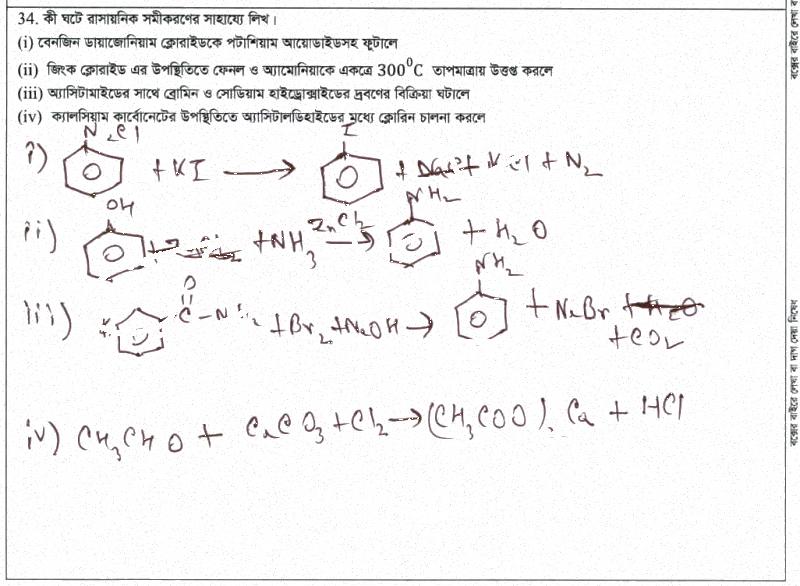 34. কী ঘটে রাসায়নিক সমীকরণের সাহায্যে লিখ।
(i) বেনজিন ডায়াজোনিয়াম ক্লোরাইডকে পটাশিয়াম আয়োডাইডসহ ফুটালে
(ii) জিংক ক্লোরাইড এর উপস্থিতিতে ফেনল ও অ্যামোনিয়াকে একত্রে 300⁰C তাপমাত্রায় উত্তপ্ত করলে
(iii) অ্যাসিটামাইডের সাথে ব্রোমিন ও সোডিয়াম হাইড্রোক্সাইডের দ্রবণের বিক্রিয়া ঘটালে
(iv) ক্যালসিয়াম কার্বোনেটের উপস্থিতিতে অ্যাসিটালডিহাইডের মধ্যে ক্লোরিন চালনা করলে
N₂Cl I
i) + KI → + KCl + N₂
OH NH₂
ii) + NH₃ ZnCl₂ → + H₂O
O NH₂
iii) C-NH₂ + Br₂ + NaOH → + NaBr + H₂O
+ CO₂
iv) CH₃CHO + CaCO₃ + Cl₂ → (CH₃COO)₂ Ca + HCl
বক্সের বাইরে লেখা বা দাগ দেয়া নিষেধ
বক্সের বাইরে লেখা ব